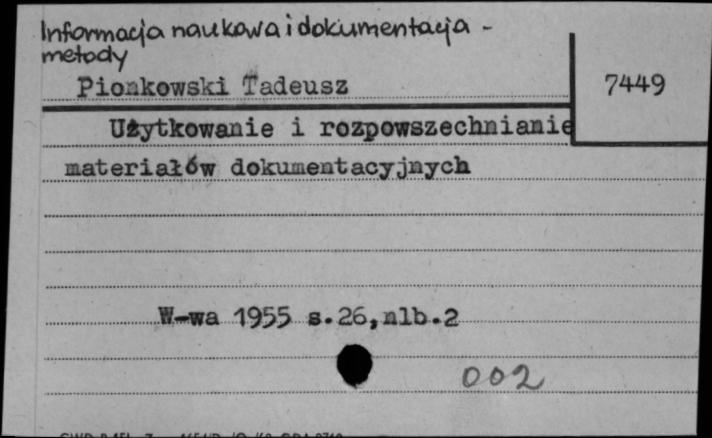 Informacja naukowa i dokumentacja -
metody
Pionkowski Tadeusz
7449
Użytkowanie i rozpowszechnianie
materiałów dokumentacyjnych
W-wa 1955 s.26,nlb.2
002